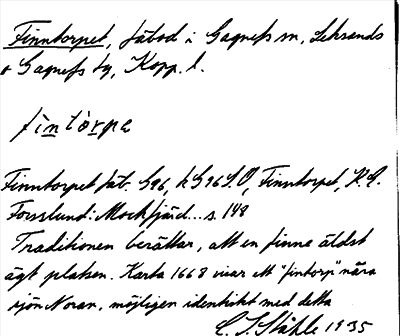 Finntorpet, fäbod i Gagnefs sn, Leksands
o Gagnefs tg, Kopp. l.
fintòrpa
Finntorpet fäb. G96, kG96S.O, Finntorpet, K.E.
Forsslund: Mockfjärd... s. 148
Traditionen berättar, att en finne äldst
ägt platsen. Karta 1668 visar ett "fintorp" nära
sjön Noran, möjligen identiskt med detta
C. I. Ståhle 1935